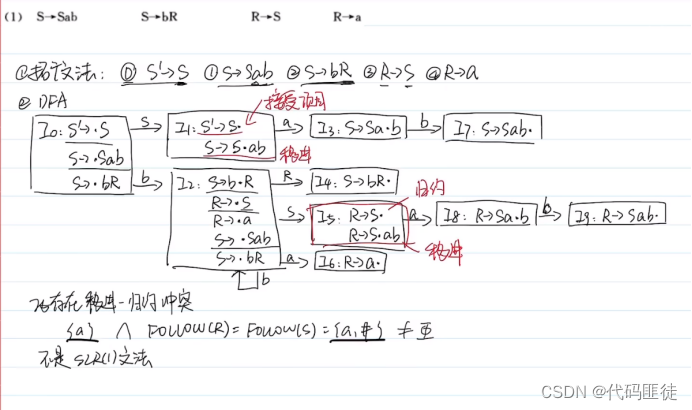 (1) S→Sab S→bR R→S R→a
①拓广文法: ⓪ S'→S ①S→Sab ②S→bR ③R→S ④R→a
② DFA
接受项目
I0: S'→·S
S→·Sab
S→·bR
S
I1: S'→S·
S→S·ab
移进
a
I3: S→Sa·b
b
I7: S→Sab·
b
I2: S→b·R
R→·S
R→·a
S→·Sab
S→·bR
b
R
I4: S→bR·
归约
S
I5: R→S·
R→S·ab
移进
a
I8: R→Sa·b
b
I9: R→Sab·
a
I6: R→a·
I5存在移进-归约冲突
{a} ∧ FOLLOW(R)=FOLLOW(S)={a,#} ≠
不是SLR(1)文法
CSDN @代码匪徒